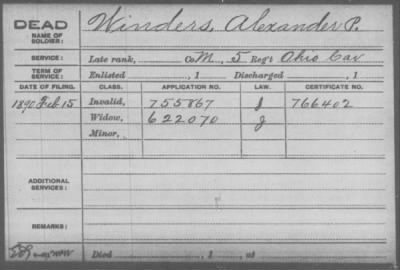 DEAD
NAME OF SOLDIER:
Winders, Alexander P.
SERVICE:
Late rank, Co. M, 5 Reg't Ohio Cav
TERM OF SERVICE:
Enlisted , 1 Discharged , 1
DATE OF FILING. CLASS. APPLICATION NO. LAW. CERTIFICATE NO.
1890 Feb 15 Invalid, 755867 J 766402
Widow, 622070 J
Minor,
ADDITIONAL SERVICES:
REMARKS:
Died , 1 , at